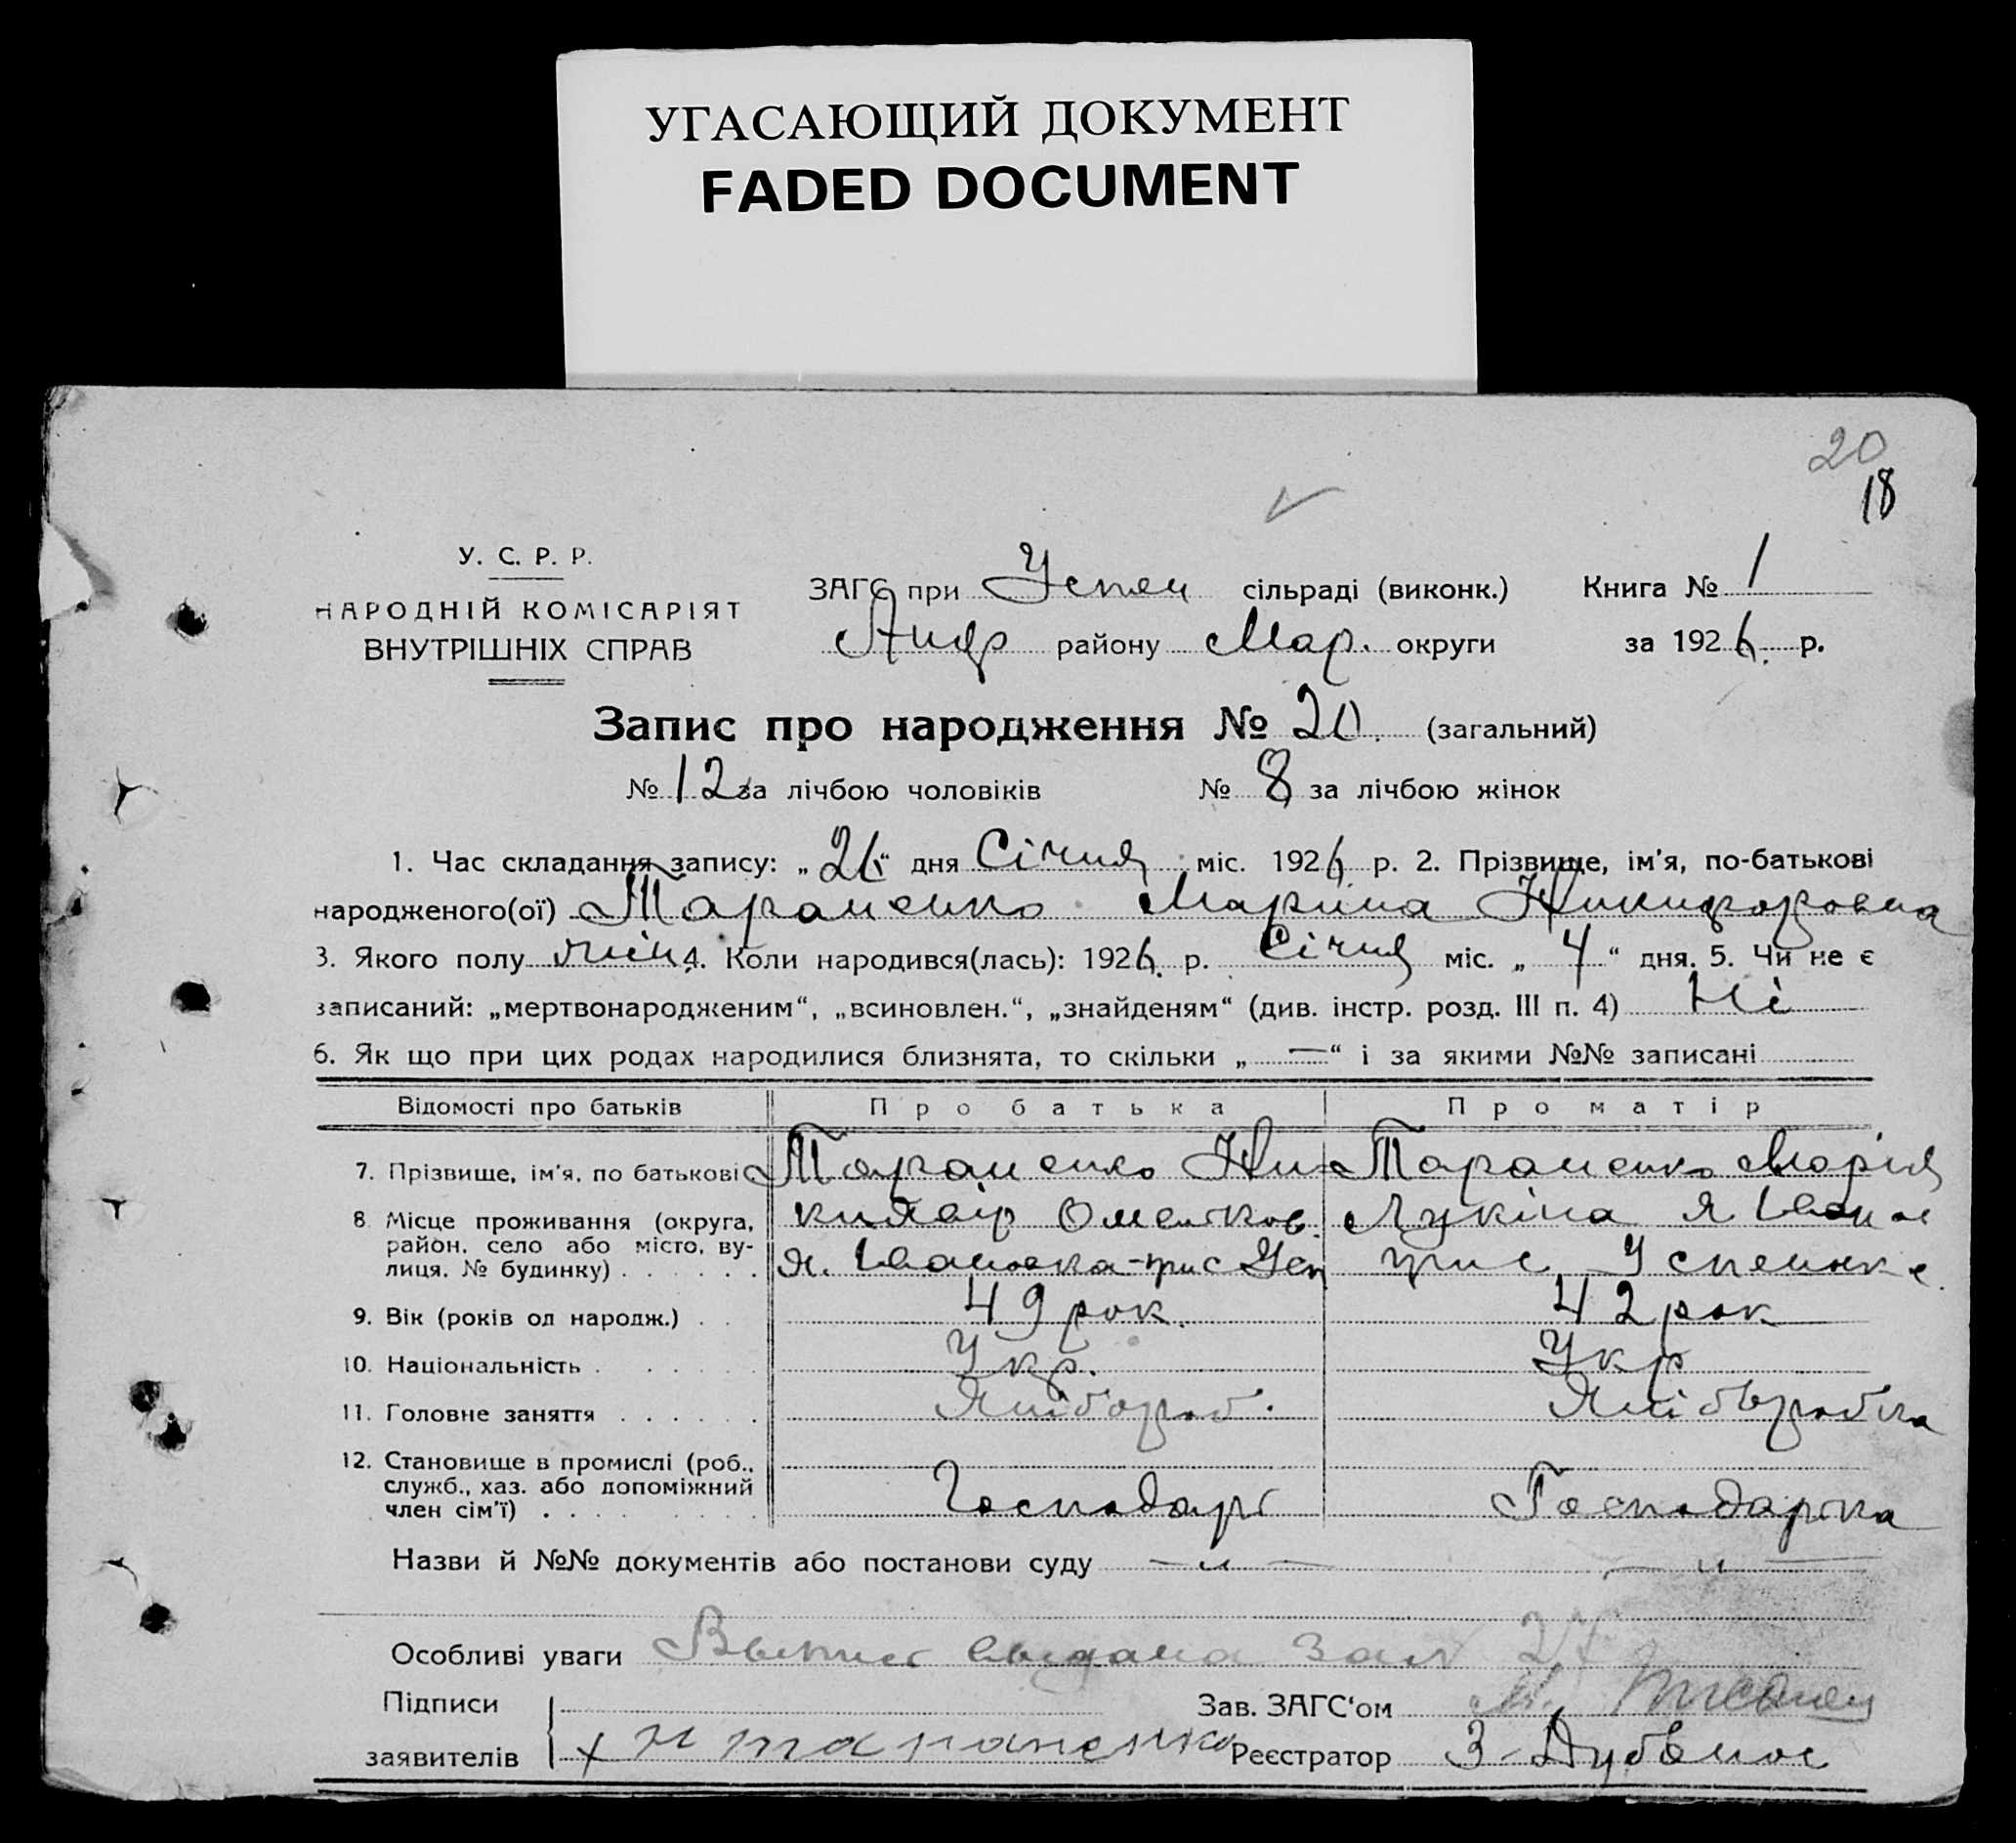 УГАСАЮЩИЙ ДОКУМЕНТ
FADED DOCUMENT
20
18
У. С. Р. Р.
НАРОДНІЙ КОМІСАРІЯТ
ВНУТРІШНІХ СПРАВ
ЗАГС при Успен сільраді (виконк.) Книга № 1
району Мар. округи за 1926 р.
Запис про народження № 20 (загальний)
№ 12 за лічбою чоловіків № 8 за лічбою жінок
1. Час складання запису: „26“ дня Січня міс. 1926 р. 2. Прізвище, ім'я, по-батькові
народженого(ої) Тараненко Марина Никифоровна
3. Якого полу жін 4. Коли народився(лась): 1926 р. Січня міс. „4“ дня. 5. Чи не є
записаний: „мертвонародженим“, „всиновлен.“, „знайденям“ (див. інстр. розд. III п. 4) Ні
6. Як що при цих родах народилися близнята, то скільки „—“ і за якими №№ записані
Відомості про батьків Про батька Про матір
7. Прізвище, ім'я, по батькові Тараненко Ни- Тараненко Марія
8 Місце проживання (округа, район, село або місто, вулиця, № будинку) кифір Омельков. Лукіна
Івановка Усп Успенка
9. Вік (років од народж.) 49 рок. 42 рок
10. Національність Укр. Укр
11. Головне заняття Хлібороб. Хліборобка
12. Становище в промислі (роб.,
служб., хаз. або допоміжний
член сім'ї) Господарь Господарька
Назви й №№ документів або постанови суду — „ — — „ —
Особливі уваги Выпись выдана
Підписи Зав. ЗАГС'ом
заявителів х Н Тараненко Реєстратор